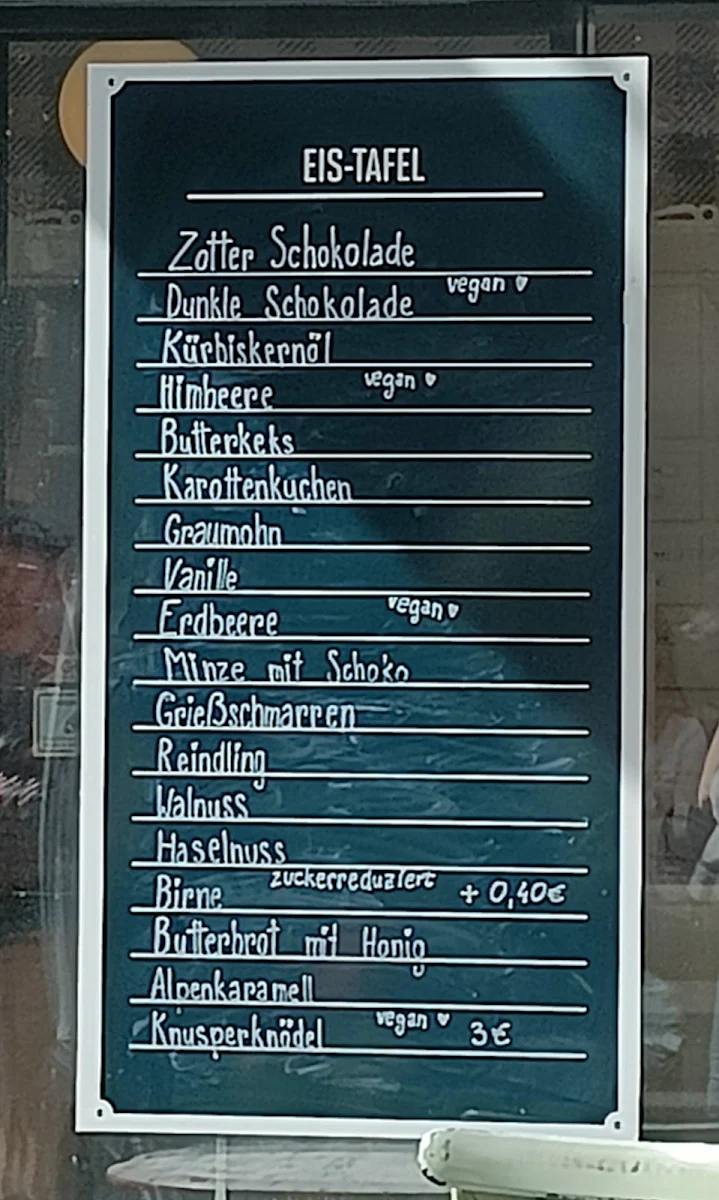 EIS-TAFEL
Zotter Schokolade
Dunkle Schokolade vegan ♥
Kürbiskernöl
Himbeere vegan ♥
Butterkeks
Karottenkuchen
Graumohn
Vanille
Erdbeere vegan ♥
Minze mit Schoko
Grießschmarren
Reindling
Walnuss
Haselnuss
Birne zuckerreduziert + 0,40€
Butterbrot mit Honig
Alpenkaramell
Knusperknödel vegan ♥ 3€